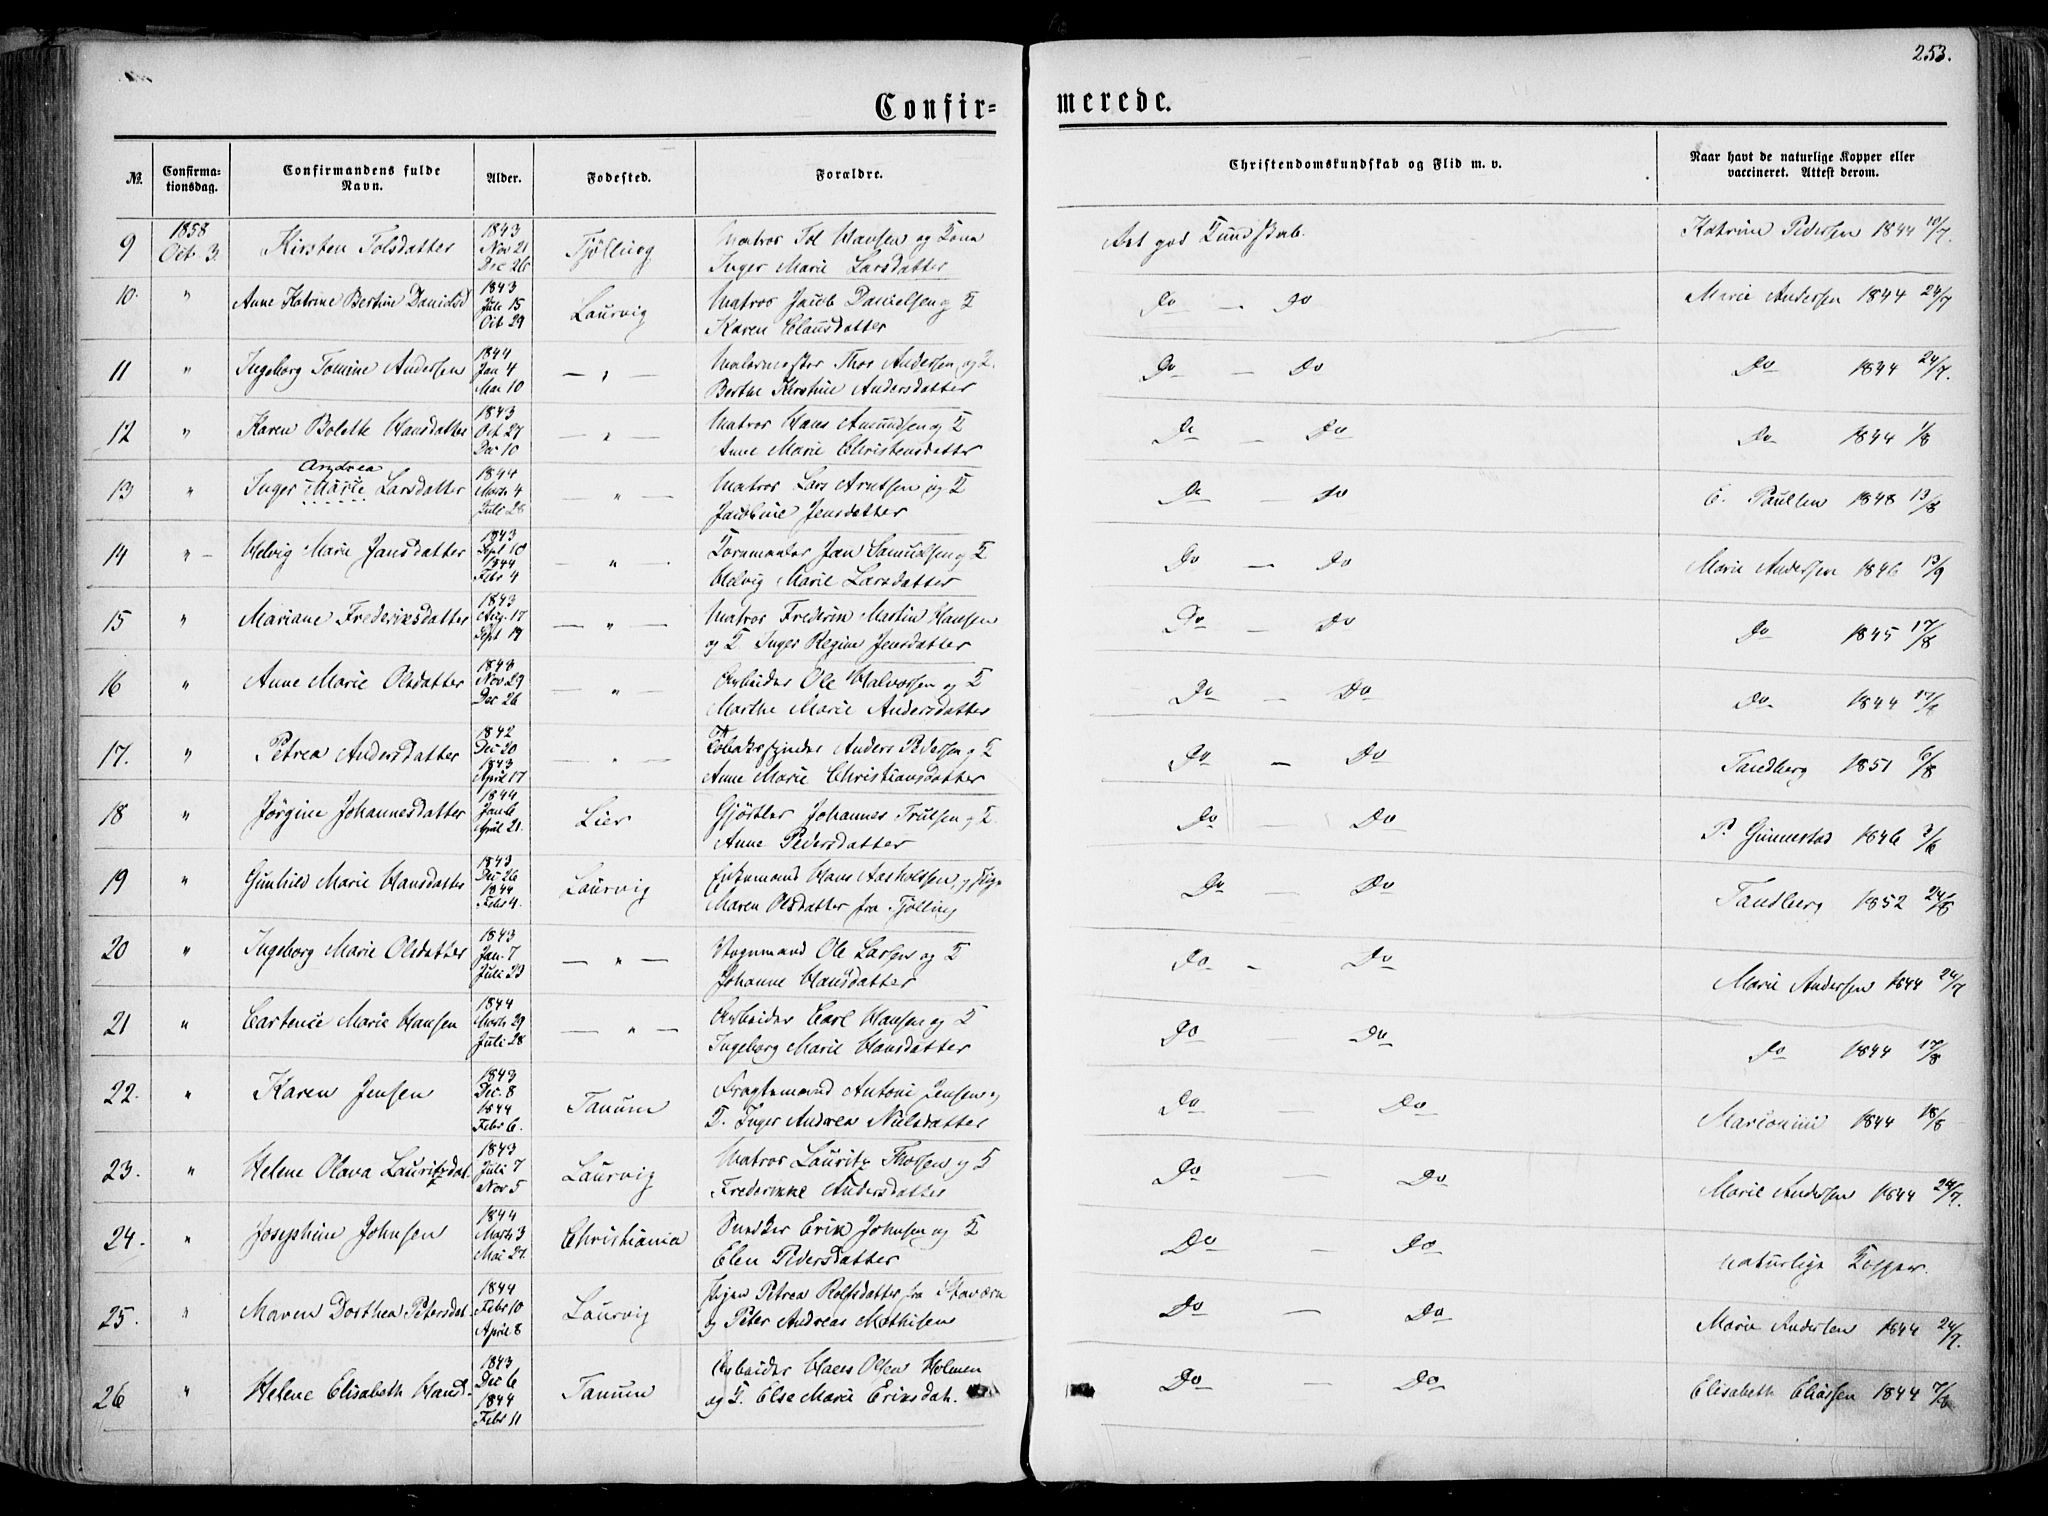 253.
Confir=
merede.
№. Confirma-tionsdag. Confirmandens fulde Navn. Alder. Fodested. Foraldre. Christendomskundskab og Flid m. v. Naar havt de naturlige Kopper eller vaccineret. Attest derom.
9 1858 Oct 3. Kirsten Tolsdatter 1843 Nov 21 Dec 26 Tjølling Matros Tol Hansen og Kone Inger Marie Larsdatter god Kundskab. Katrine Pedersen 1844 10/7.
10. " Anne Katrine Bertine Danielsd 1843 Juli 15 Oct 29 Laurvig Matros Jacob Danielsen og K Karen Clausdatter Do - Do Marie Andersen 1844 24/7
11 " Ingeborg Tomine Andersen 1844 Jan 4 Mai 10 — " — Malermester Thor Andersen og K. Berthe Kirstine Andersdatter Do - Do Do 1844 24/7.
12 " Karen Bolette Hansdatter 1843 Oct 27 Dec 10 — " — Matros Hans Amundsen og K Anne Marie Christensdatter Do - Do Do 1844 1/8
13 " Inger Andrea Marie Larsdatter 1844 Marts 4 Juli 28 — " — Matros Lars Arntsen og K Jacobine Jensdatter Do - Do E. Paulsen 1848 13/8
14 " - Helvig Marie Jansdatter 1843 Sept 10 1844 Febr 4 — " — Jan Samuelsen og K Helvig Marie Larsdatter Do - Do Marie Andersen 1846 13/9
15 " Mariane Frederiksdatter 1843 Aug. 17 Sept 19 — " — Matros Frederik Martin Hansen og K Inger Regine Jensdatter Do - Do Do 1845 17/8
16 " Anne Marie Olsdatter 1843 Nov 29 Dec 26 — " — Arbeider Ole Halvorsen og K Marthe Marie Andersdatter Do - Do Do 1844 17/8
17. " Petrea Andersdatter 1842 Dec 20 1843 April 17 — " — Tobakspinder Anders Pedersen og K Anne Marie Christiansdatter Do - Do Tandberg 1851 6/8
18 " Jørgine Johannesdatter 1844 Jan 6 April 21. Lier Gjørtler Johannes Trulsen og K. Anne Pedersdatter Do - Do P. Gunnestad 1846 3/6
19 " Gunhild Marie Hansdatter 1843 Dec 26 1844 Febr 4. Laurvig Enkemand Hans Aslaksen og Pige Maren Olsdatter fra Tjølling Do - Do Tandberg 1852 24/8
20 " Ingeborg Marie Olsdatter 1843 Jan. 7 Juli 23 — " — Vognmand Ole Larsen og K Johanne Hansdatter Do - Do Marie Andersen 1844 24/7
21 " Marie Hansen 1844 Marts 29 Juli 28 — " — Arbeider Carl Hansen og K Ingeborg Marie Hansdatter Do - Do Do 1844 17/8
22. " Karen Jensen 1843 Dec. 8 1844 Febr 6. Tanum Fragtemand Antoni Jensen og K. Inger Andrea Nielsdatter Do - Do 1844 18/8
23. " Helene Olava Lauritzdat. 1843 Juli 7 Nov 5 Laurvig Matros Lauritz Thorsen og K Frederikke Andersdatter Do - Do Marie Andersen 1844 24/7.
24. " Josephine Johnsen 1844 Marts 3 Mai 27. Christiania Snedker Erik Johnsen og K Elen Pedersdatter Do - Do naturlige Kopper.
25. " Maren Dorthea Petersdat. 1844 Febr 10 April 8 Laurvig Pigen Petrea Rolfsdatter fra Stavern og Peter Andreas Mathisen Do - Do Marie Andersen 1844 24/7.
26 " Helene Elisabeth Hansd. 1843 Dec 6 1844 Febr 11 Tanum Arbeider Hans Olsen Holmen og K. Else Marie Eriksdat. Do - Do Elisabeth Eliassen 1844 7/8